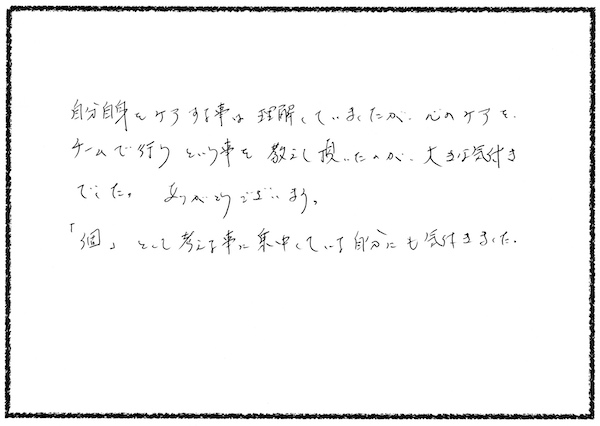 自分自身をケアする事は理解していましたが、心のケアを、
チームで行うという事を教えて頂いたのが、大きな気付き
でした。ありがとうございます。
「個」として考える事に集中している自分にも気付きました。